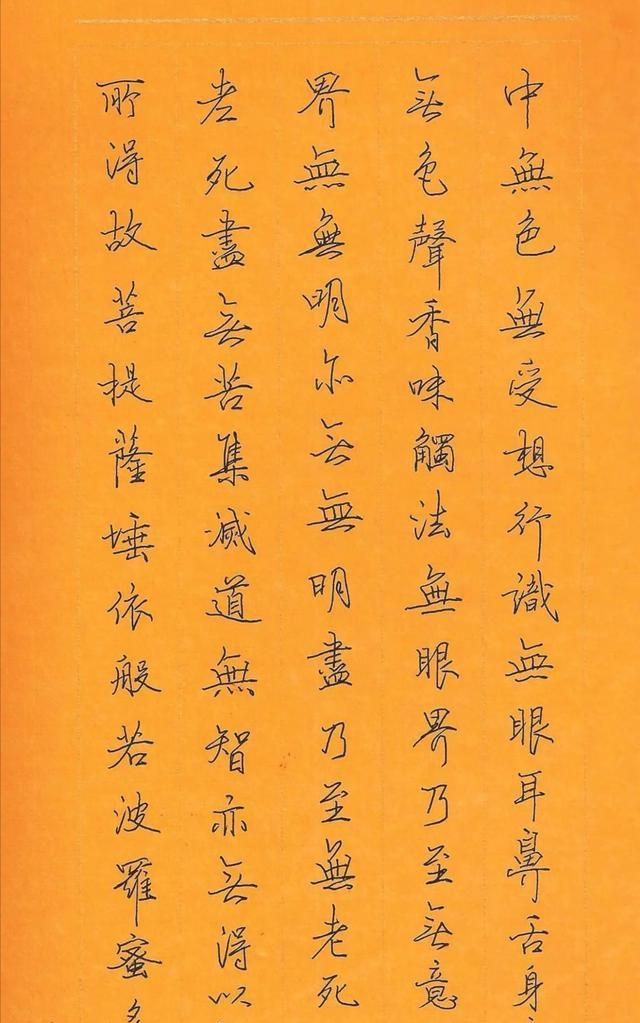 中無色無受想行識無眼耳鼻舌身
無色聲香味觸法無眼界乃至無意
界無無明亦無無明盡乃至無老死
老死盡無苦集滅道無智亦無得以
所得故菩提薩埵依般若波羅蜜多